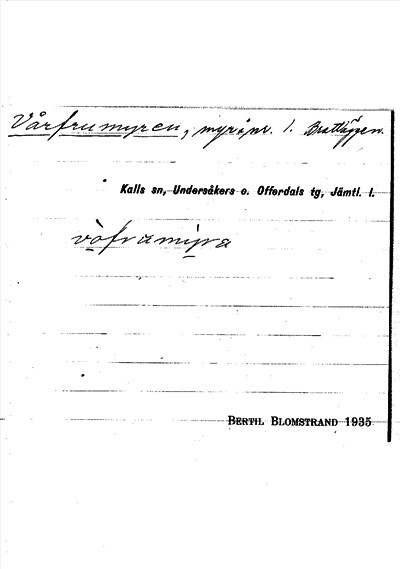 Vårfrumyren, myr i nv. l. Brattåppen.
Kalls sn, Undersåkers o. Offerdals tg, Jämtl. l.
vòframỳra
BERTIL BLOMSTRAND 1935